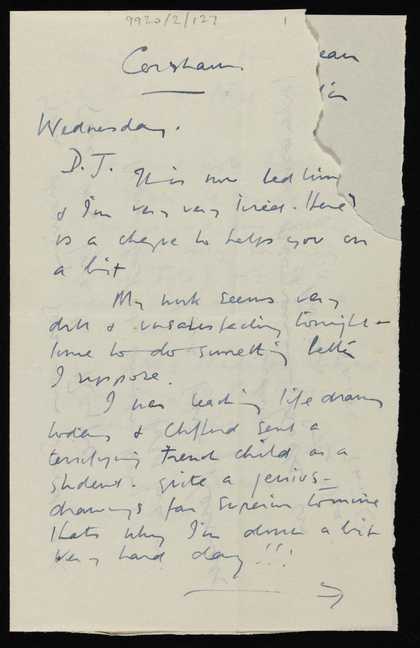 9920/2/127
1
Corsham.
ean
in
Wednesday.
D.J. It is now bed time
& I'm very very tired. Here
is a cheque to help you on
a bit
My work seems very
dull & unsatisfactory tonight –
time to do something better
I suppose.
I was teaching life drawing
today & Clifford sent a
terrifying French child as a
student. quite a genius –
drawings far superior to mine
thats why I'm down a bit
Very hard day!!!